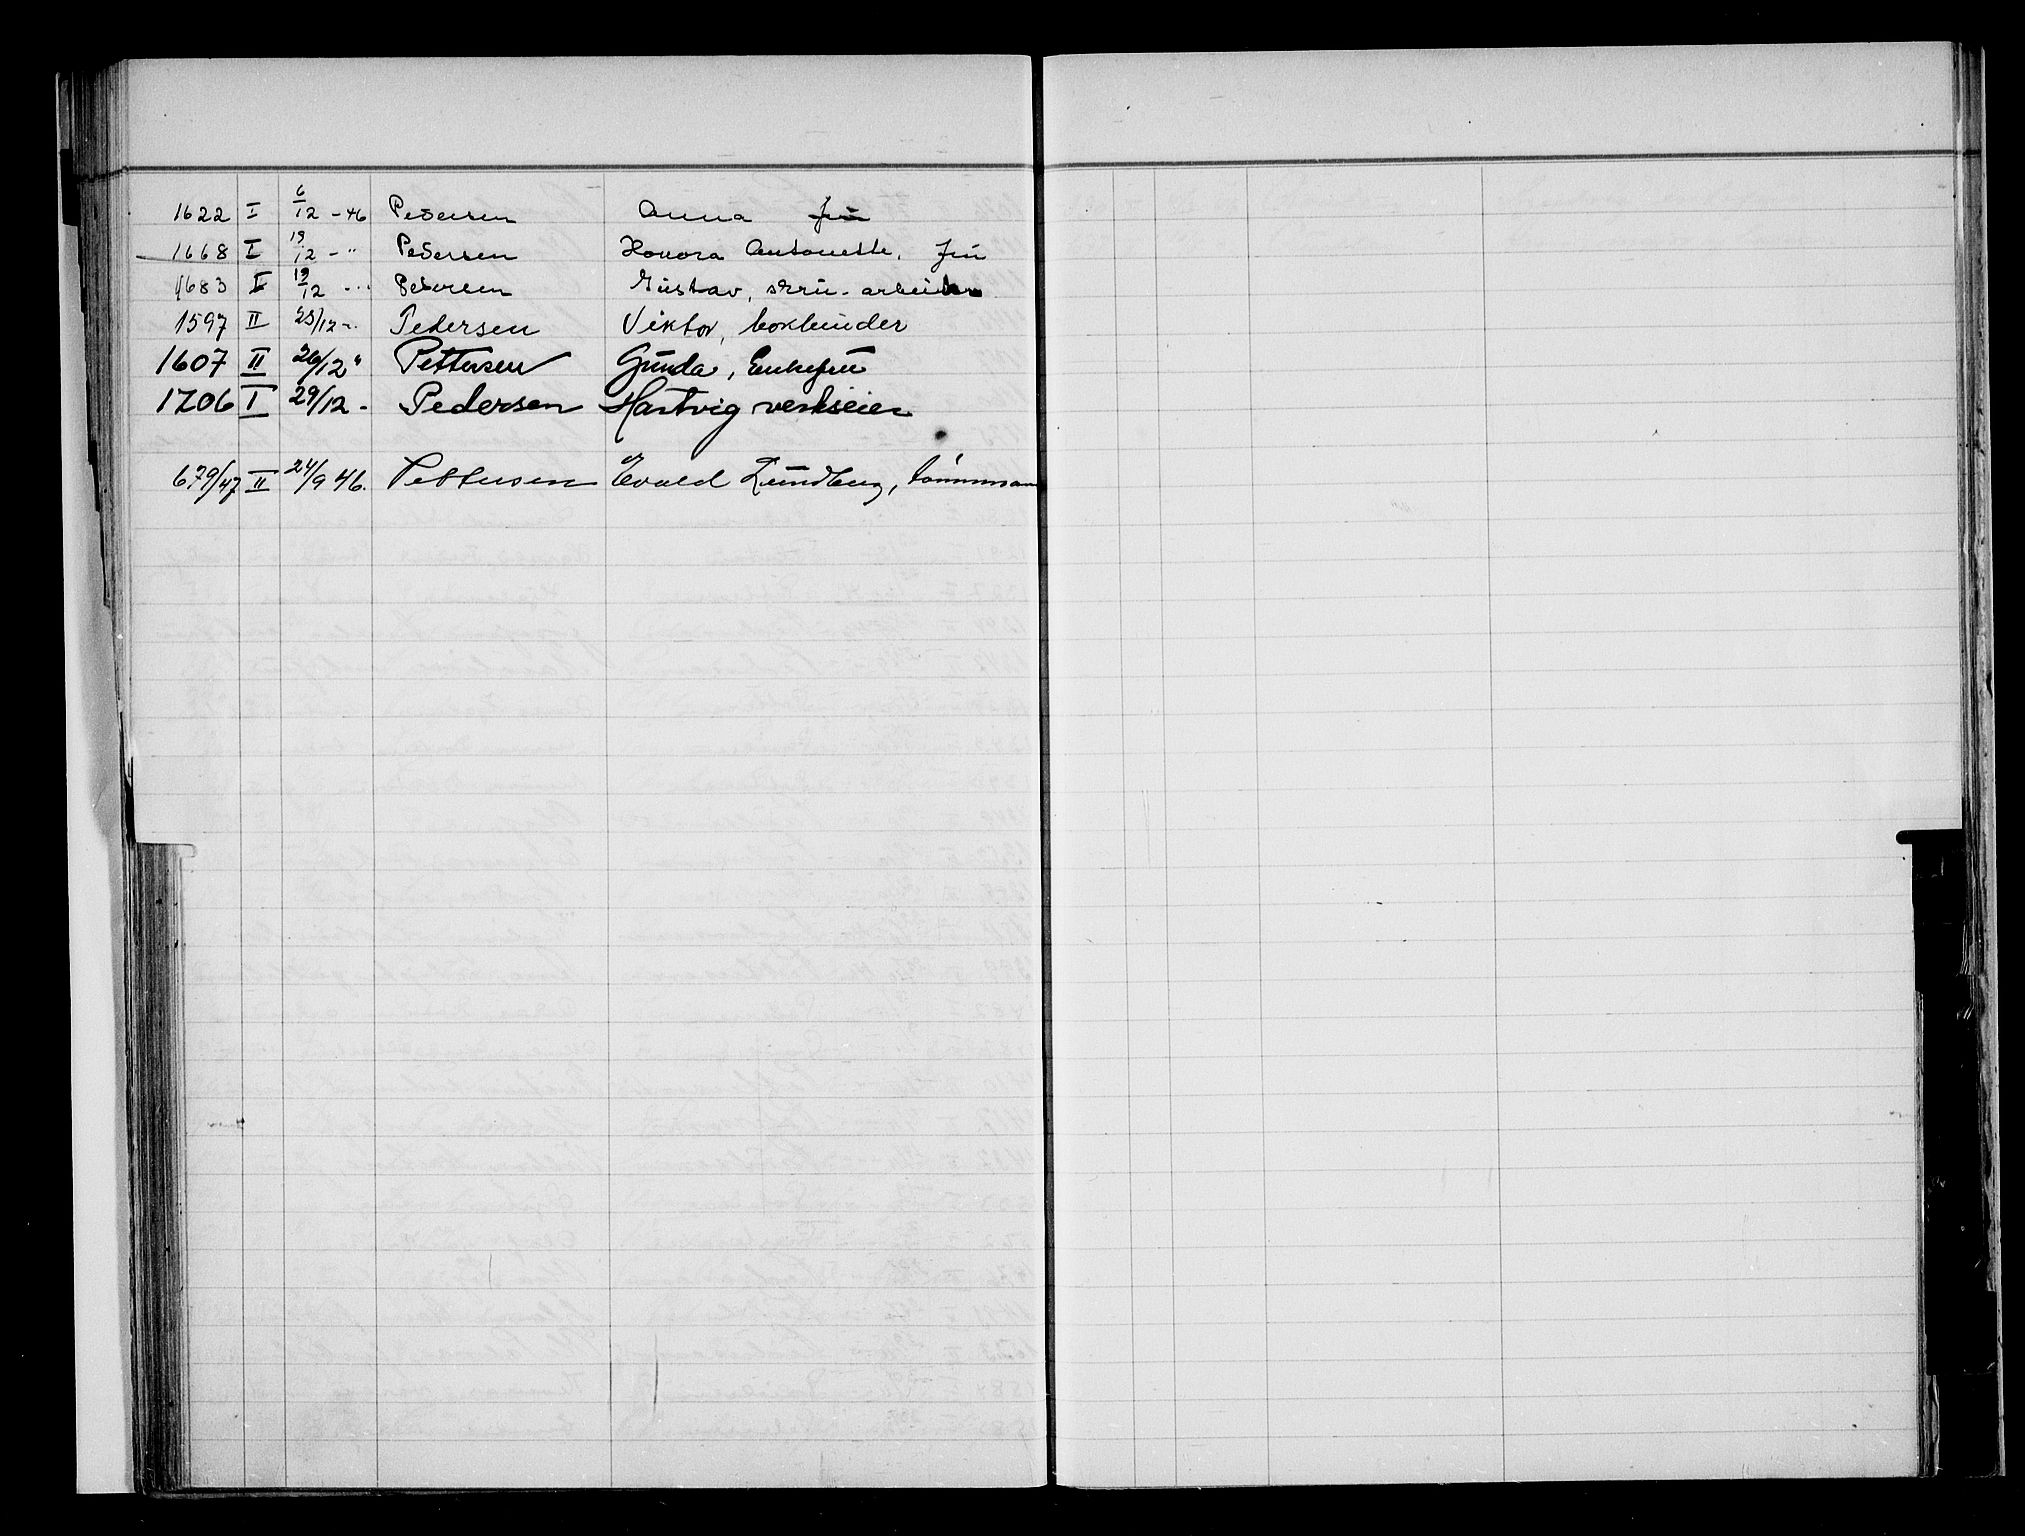 1622 I 6/12 - 46 Pedersen Anna fru
1668 I 19/12 - " Pedersen Honora Antonette, fru
1683 I 19/12 - " Petersen Gustav, skru-arbeider
1597 II 23/12 - " Pedersen Viktor, bokbinder
1607 II 26/12 " Pettersen Gunda, Enkefru
1706 I 29/12 - Pedersen Hartvig verkseier
679/47 II 24/9 46. Pettersen Evald Lundberg, tømmermann